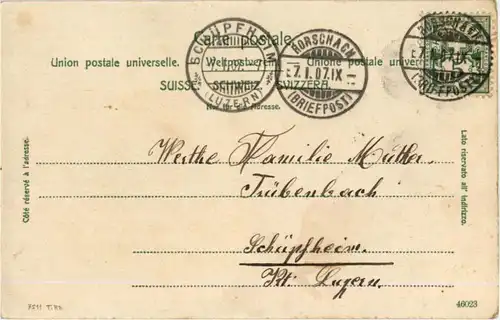 Carte postale.
Union postale universelle. Weltpostverein. Unione postale universale
SUISSE. SCHWEIZ. SVIZZERA.
Nur für die Adresse.
SCHÜPFHEIM
(LUZERN)
RORSCHACH
7.I.07.IX
(BRIEFPOST)
RORSCHACH
7.I.07.IX
(BRIEFPOST)
Côté réservé à l'adresse.
Lato riservato all' indirizzo.
Werthe Familie Müller.
Trübenbach
Schüpfheim.
Kt. Luzern.
46023